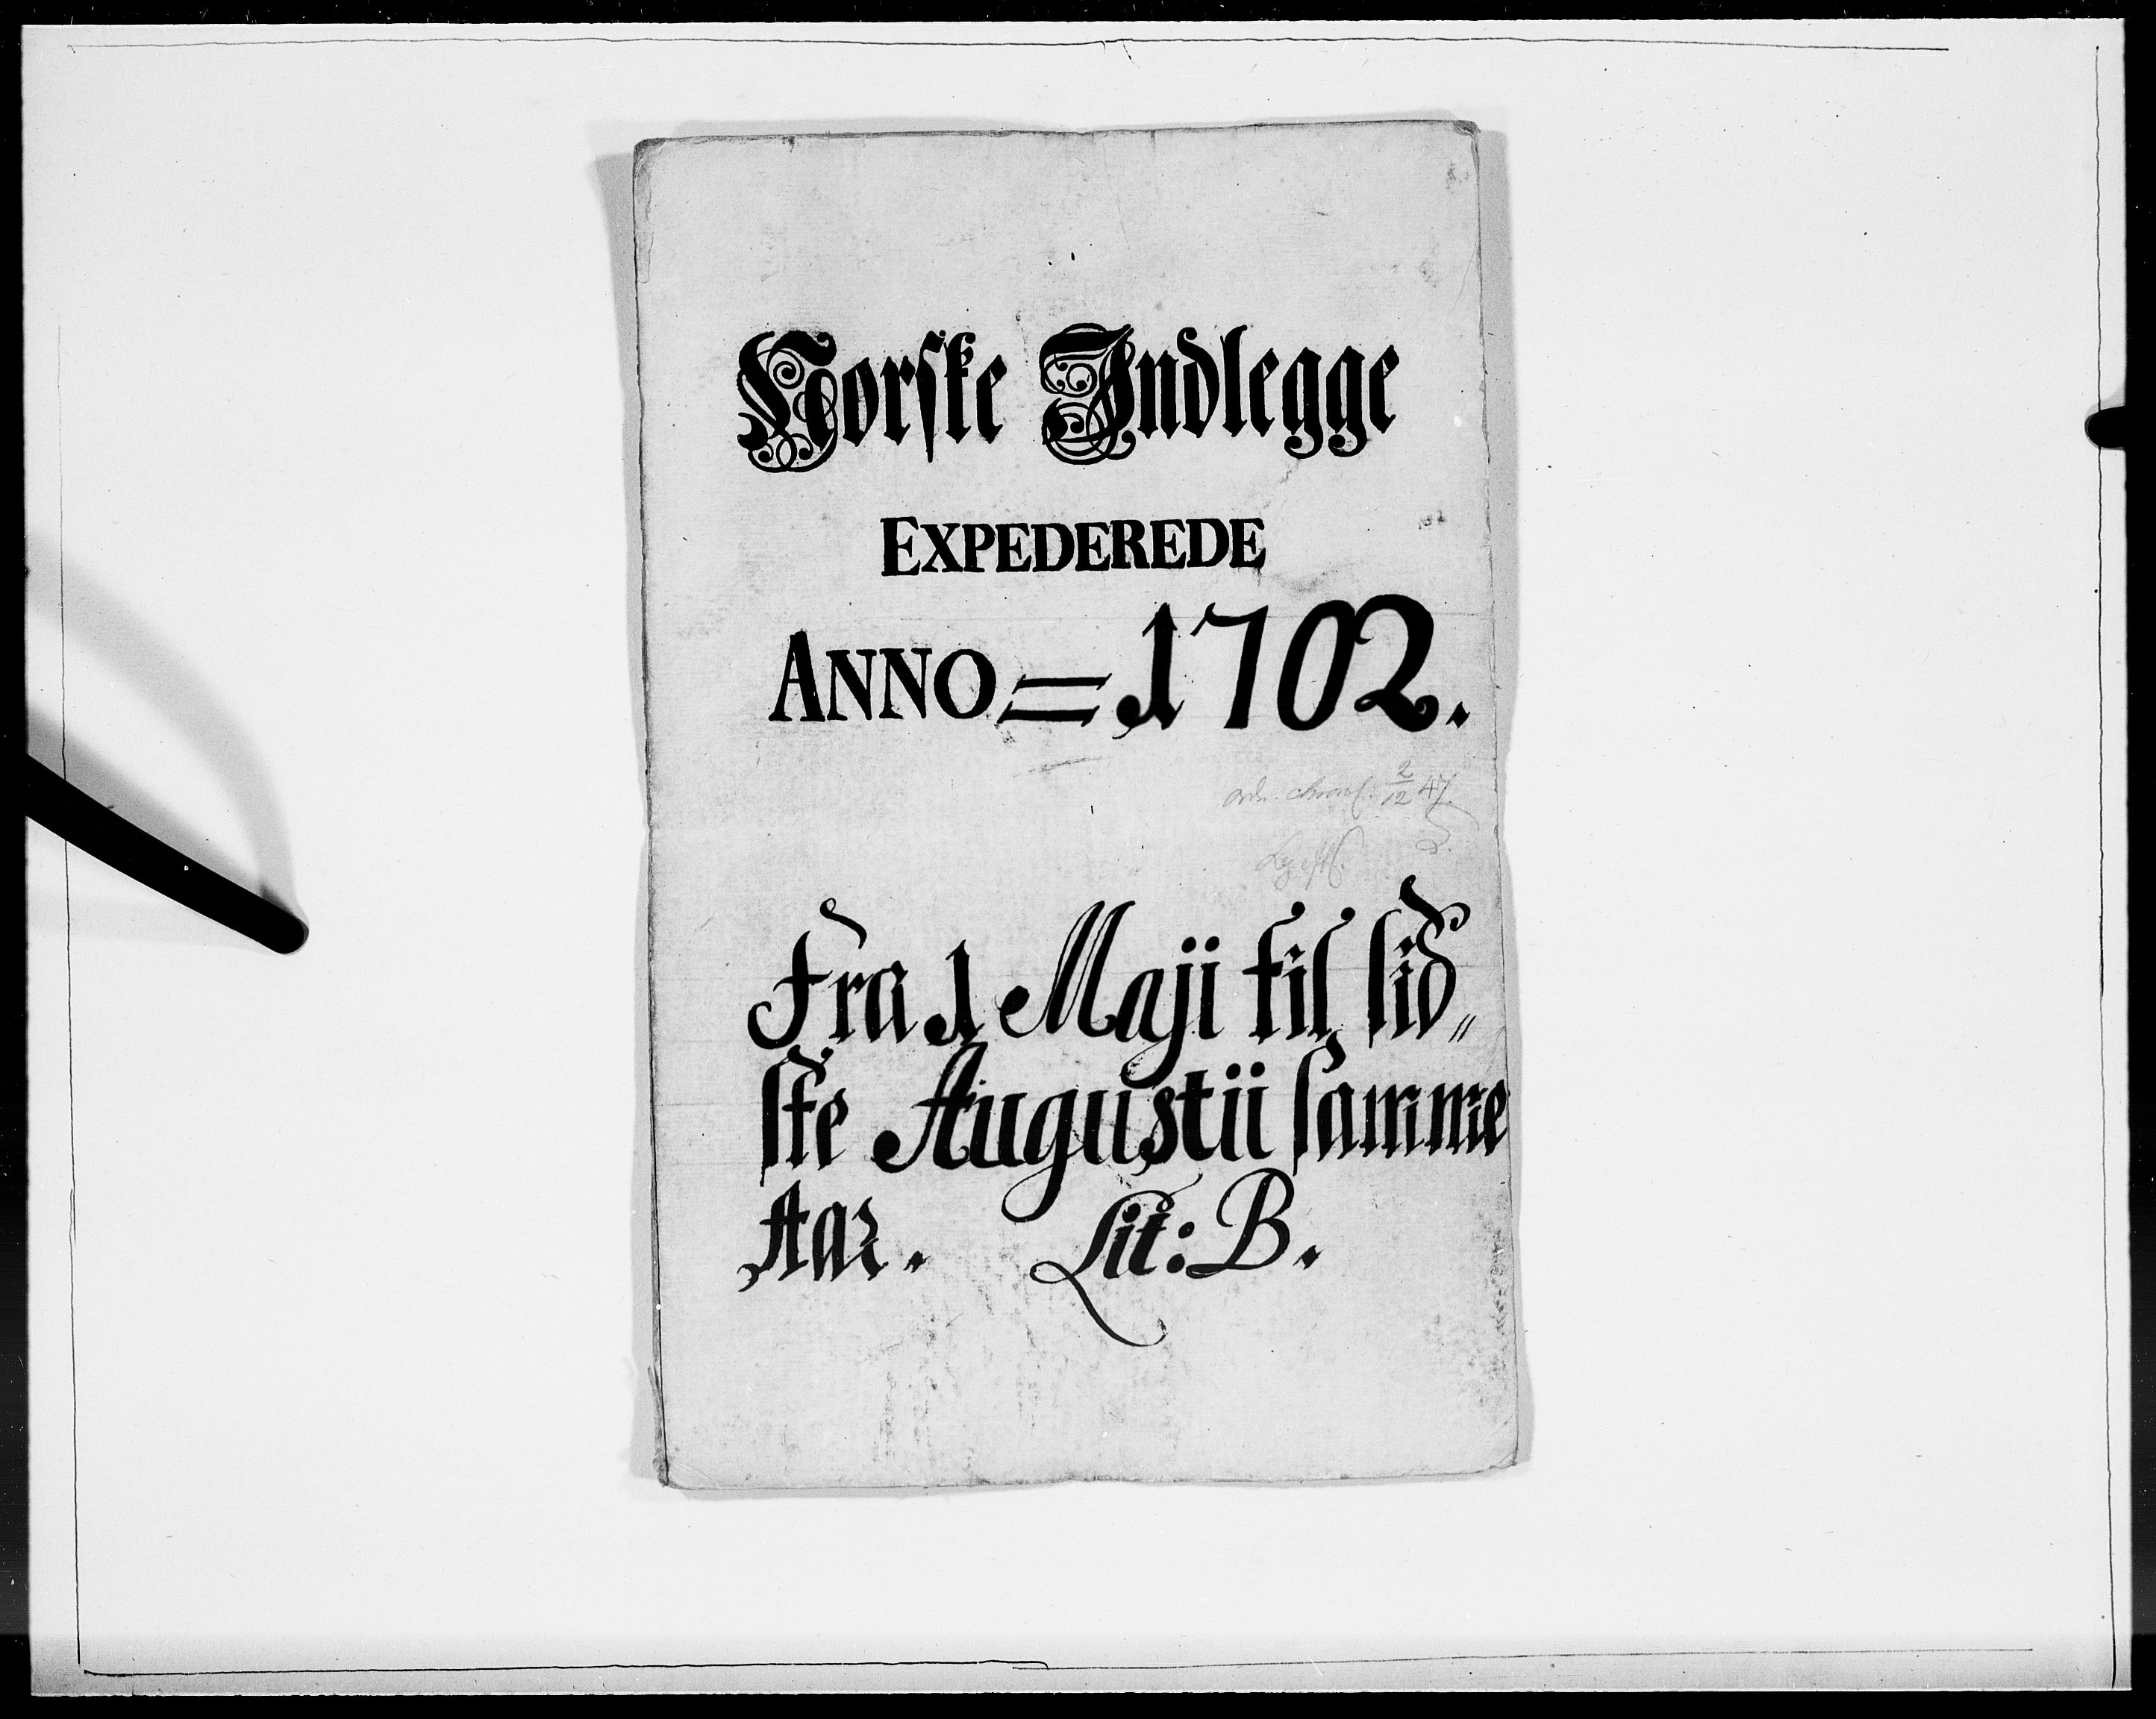 Norske Indlegge
EXPEDEREDE
ANNO = 1702.
ordn. chronl. 2/12 47.
Fra 1 Maji til sid„
ste Augustii samme
Aar. Lit: B.